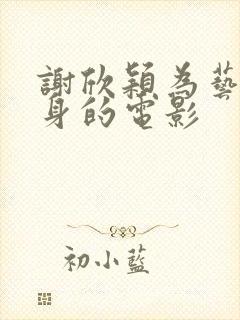 謝欣穎為藝
身的電影
初小藍